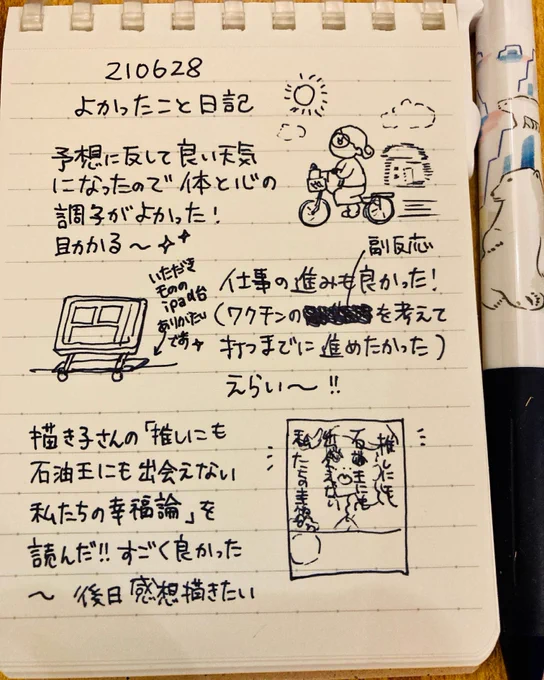 210628
よかったこと日記
予想に反して良い天気
になったので体と心の
調子がよかった!
助かる〜
いただき
ものの
ipad台
ありがたい
です
副反応
仕事の進みも良かった!
(ワクチンの を考えて
打つまでに進めたかった)
えらい〜!!
描き子さんの「推しにも
石油王にも出会えない
私たちの幸福論」を
読んだ!!すごく良かった
〜 後日感想描きたい
推しにも
石油王にも
出会えない
私たちの幸福論